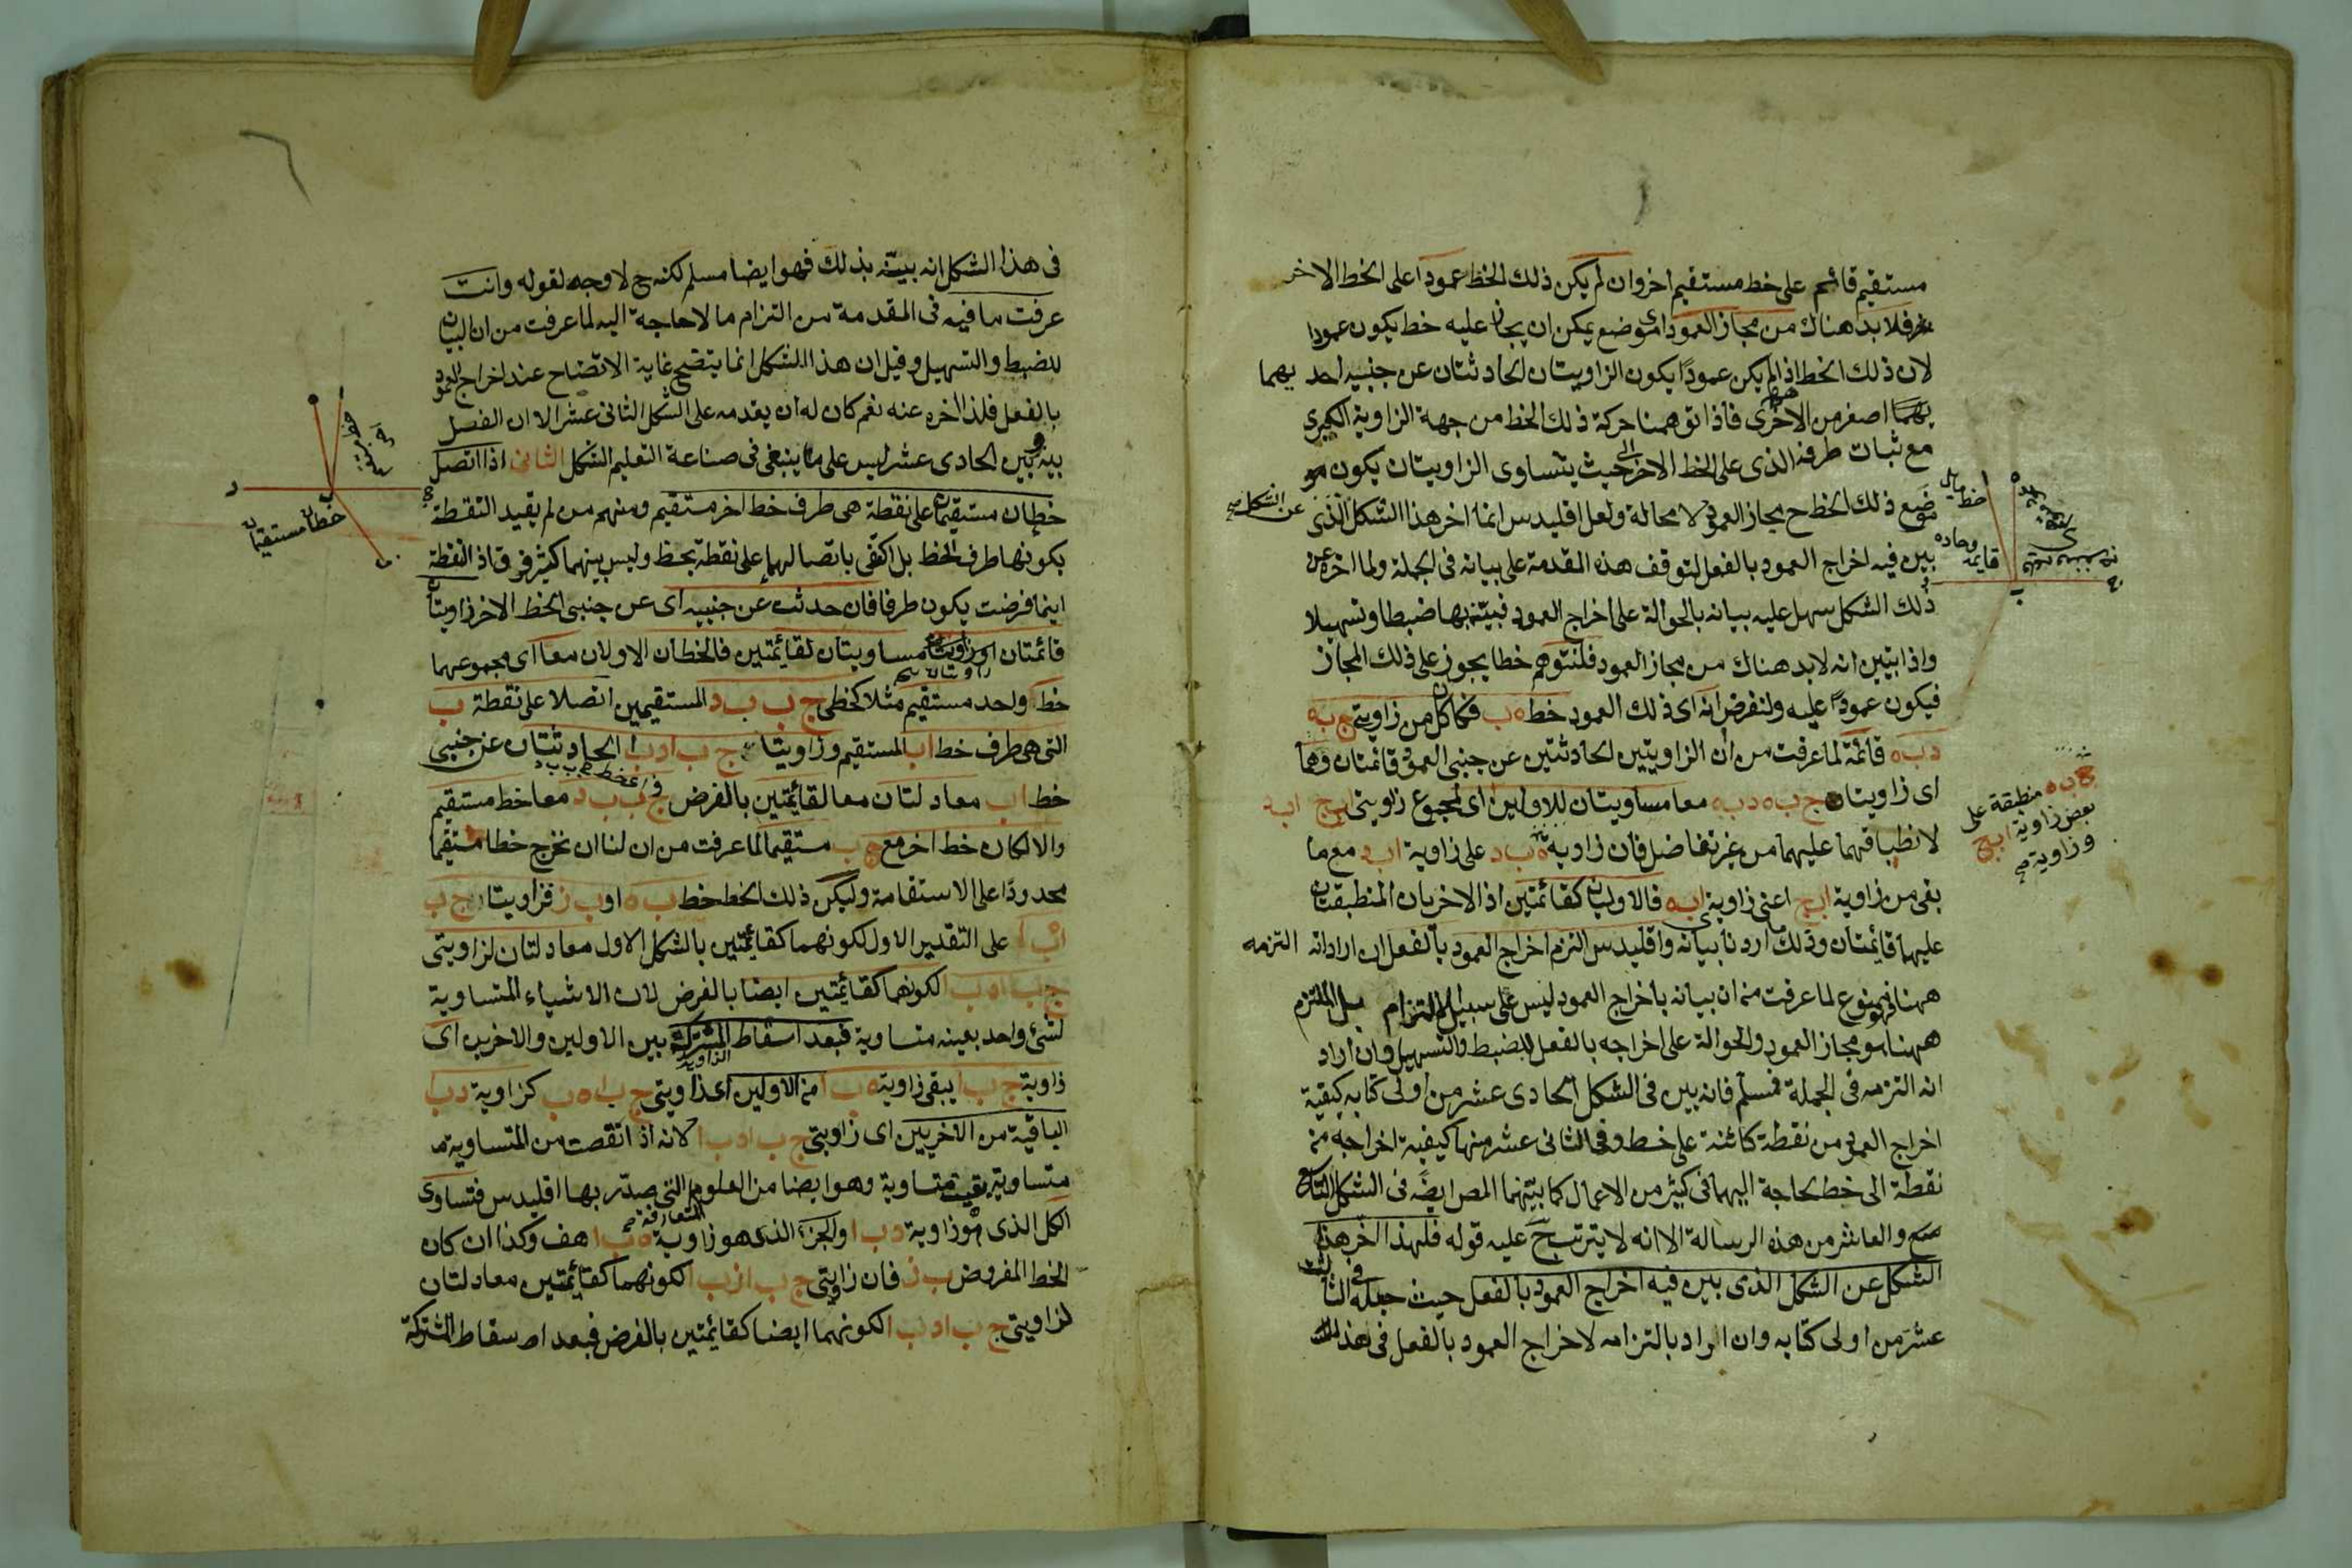 مستقيم قائم على خط مستقيم اخر وان لم يكن ذلك الخط عمودا على الخط الاخر
فلا بد هناك من مجاز العمود اى موضع يمكن ان يجاز عليه خط يكون عمودا
لان ذلك الخط اذا لم يكن عمودا يكون الزاويتان الحادثتان عن جنبيه احديهما
اصغر من الاخرى فاذا توهمنا حركة ذلك الخط من جهة الزاوية الكبرى
مع ثبات طرفه الذى على الخط الاخر الى حيث يتساوى الزاويتان يكون مو
ضع ذلك الخط ح مجاز العمود لا محالة ولعل اقليدس انما اخر هذا الشكل عن الشكل الذى
بين فيه اخراج العمود بالفعل لتوقف هذه المقدمة على بيانه فى الجملة ولما اخره عن
ذلك الشكل سهل عليه بيانه بالحوالة على اخراج العمود فبيّنه بها ضبطا وتسهيلا
واذا بيّن انه لا بد هناك من مجاز العمود فلنتوهم خطا يجوز على ذلك المجاز
فيكون عمودا عليه ولنفرض انه اى ذلك العمود خط ه ب فكان كل من زاويتى ج ب ه
د ب ه قائمة لما عرفت من ان الزاويتين الحادثتين عن جنبى العمود قائمتان وهما
اى زاويتا ج ب ه د ب ه معا مساويتان للاوليين اى لمجموع زاويتى ا ب ج ا ب د
لانطباقهما عليهما من غير تفاضل فان زاوية ه ب د على زاوية ا ب د مع ما
بقى من زاوية ا ب ج اعنى زاوية ا ب ه فالاوليان كقائمتين اذ الاخريان المنطبقتان
عليهما قائمتان وذلك ما اردنا بيانه واقليدس التزم اخراج العمود بالفعل ان اراد انه التزمه
ههنا فهو ممنوع لما عرفت من ان بيانه باخراج العمود ليس على سبيل الالتزام بل الملتزم
ههنا هو مجاز العمود والحوالة على اخراجه بالفعل للضبط والتسهيل وان اراد
انه التزمه فى الجملة فمسلم فانه بين فى الشكل الحادى عشر من اولى كتابه كيفية
اخراج العمود من نقطة كائنة على خط وفى الثانى عشر منها كيفية اخراجه من
نقطة الى خط لحاجة اليهما فى كثير من الاعمال كما بيّنهما المص ايضا فى الشكل التاسع
والعاشر من هذه الرسالة الا انه لا يترتب ح عليه قوله فلهذا اخر هذا
الشكل عن الشكل الذى بين فيه اخراج العمود بالفعل حيث جعله فى الثالث
عشر من اولى كتابه وان اراد بالتزامه لاخراج العمود بالفعل فى هذا
خط مايل
قائمه
ج ب ه منطبقة على
بعض زاوية ا ب ج
وزاوية
فى هذا الشكل انه بيّنه بذلك فهو ايضا مسلم لكنه ح لا وجه لقوله وانت
عرفت ما فيه فى المقدمة من التزام ما لا حاجة اليه لما عرفت من ان البيان
للضبط والتسهيل وقيل ان هذا الشكل انما يتضح غاية الاتضاح عند اخراج العمود
بالفعل فلذا اخره عنه نعم كان له ان يقدمه على الشكل الثانى عشر الا ان الفصل
بينه وبين الحادى عشر ليس على ما ينبغى فى صناعة التعليم الشكل الثانى اذا اتصل
خطان مستقيمان على نقطة هى طرف خط اخر مستقيم ومنهم من لم يقيد النقطة
بكونها طرف الخط بل اكتفى باتصالهما على نقطة بخط وليس بينهما كثير فرق اذ النقطة
اينما فرضت يكون طرفا فان حدثت عن جنبيه اى عن جنبى الخط الاخر زاويتان
قائمتان او زاويتان مساويتان لقائمتين فالخطان الاولان معا اى مجموعهما
خط واحد مستقيم مثلا كخطى ج ب ب د المستقيمين اتصلا على نقطة ب
التى هى طرف خط ا ب المستقيم وزاويتا ج ب ا د ب ا الحادثتان عن جنبى
خط ا ب معادلتان معا لقائمتين بالفرض فخط ج ب ب د معا خط مستقيم
والا لكان خط اخر مع ج ب مستقيما لما عرفت من ان لنا ان نخرج خطا مستقيما
محدودا على الاستقامة وليكن ذلك الخط خط ب ه او ب ز فزاويتا ج ب ا
ه ب ا على التقدير الاول لكونهما كقائمتين بالشكل الاول معادلتان لزاويتى
ج ب ا د ب ا لكونهما كقائمتين ايضا بالفرض لان الاشياء المتساوية
لشئ واحد بعينه متساوية فبعد اسقاط المشترك بين الاولين والاخرين اى
زاوية ج ب ا يبقى زاوية ه ب ا من الاولين اى زاويتى ج ب ا ه ب ا كزاوية د ب ا
الباقية من الاخريين اى زاويتى ج ب ا د ب ا لانه اذا انقصت من المتساوية
متساوية بقيت متساوية وهو ايضا من العلوم المتعارفة التى صدّر بها اقليدس فتساوى
الكل الذى هو زاوية د ب ا والجزء الذى هو زاوية ه ب ا هف وكذا ان كان
الخط المفروض ب ز فان زاويتى ج ب ا ز ب ا لكونهما كقائمتين معادلتان
لزاويتى ج ب ا د ب ا لكونهما ايضا كقائمتين بالفرض فبعد اسقاط المشتركة
خطان مستقيمان